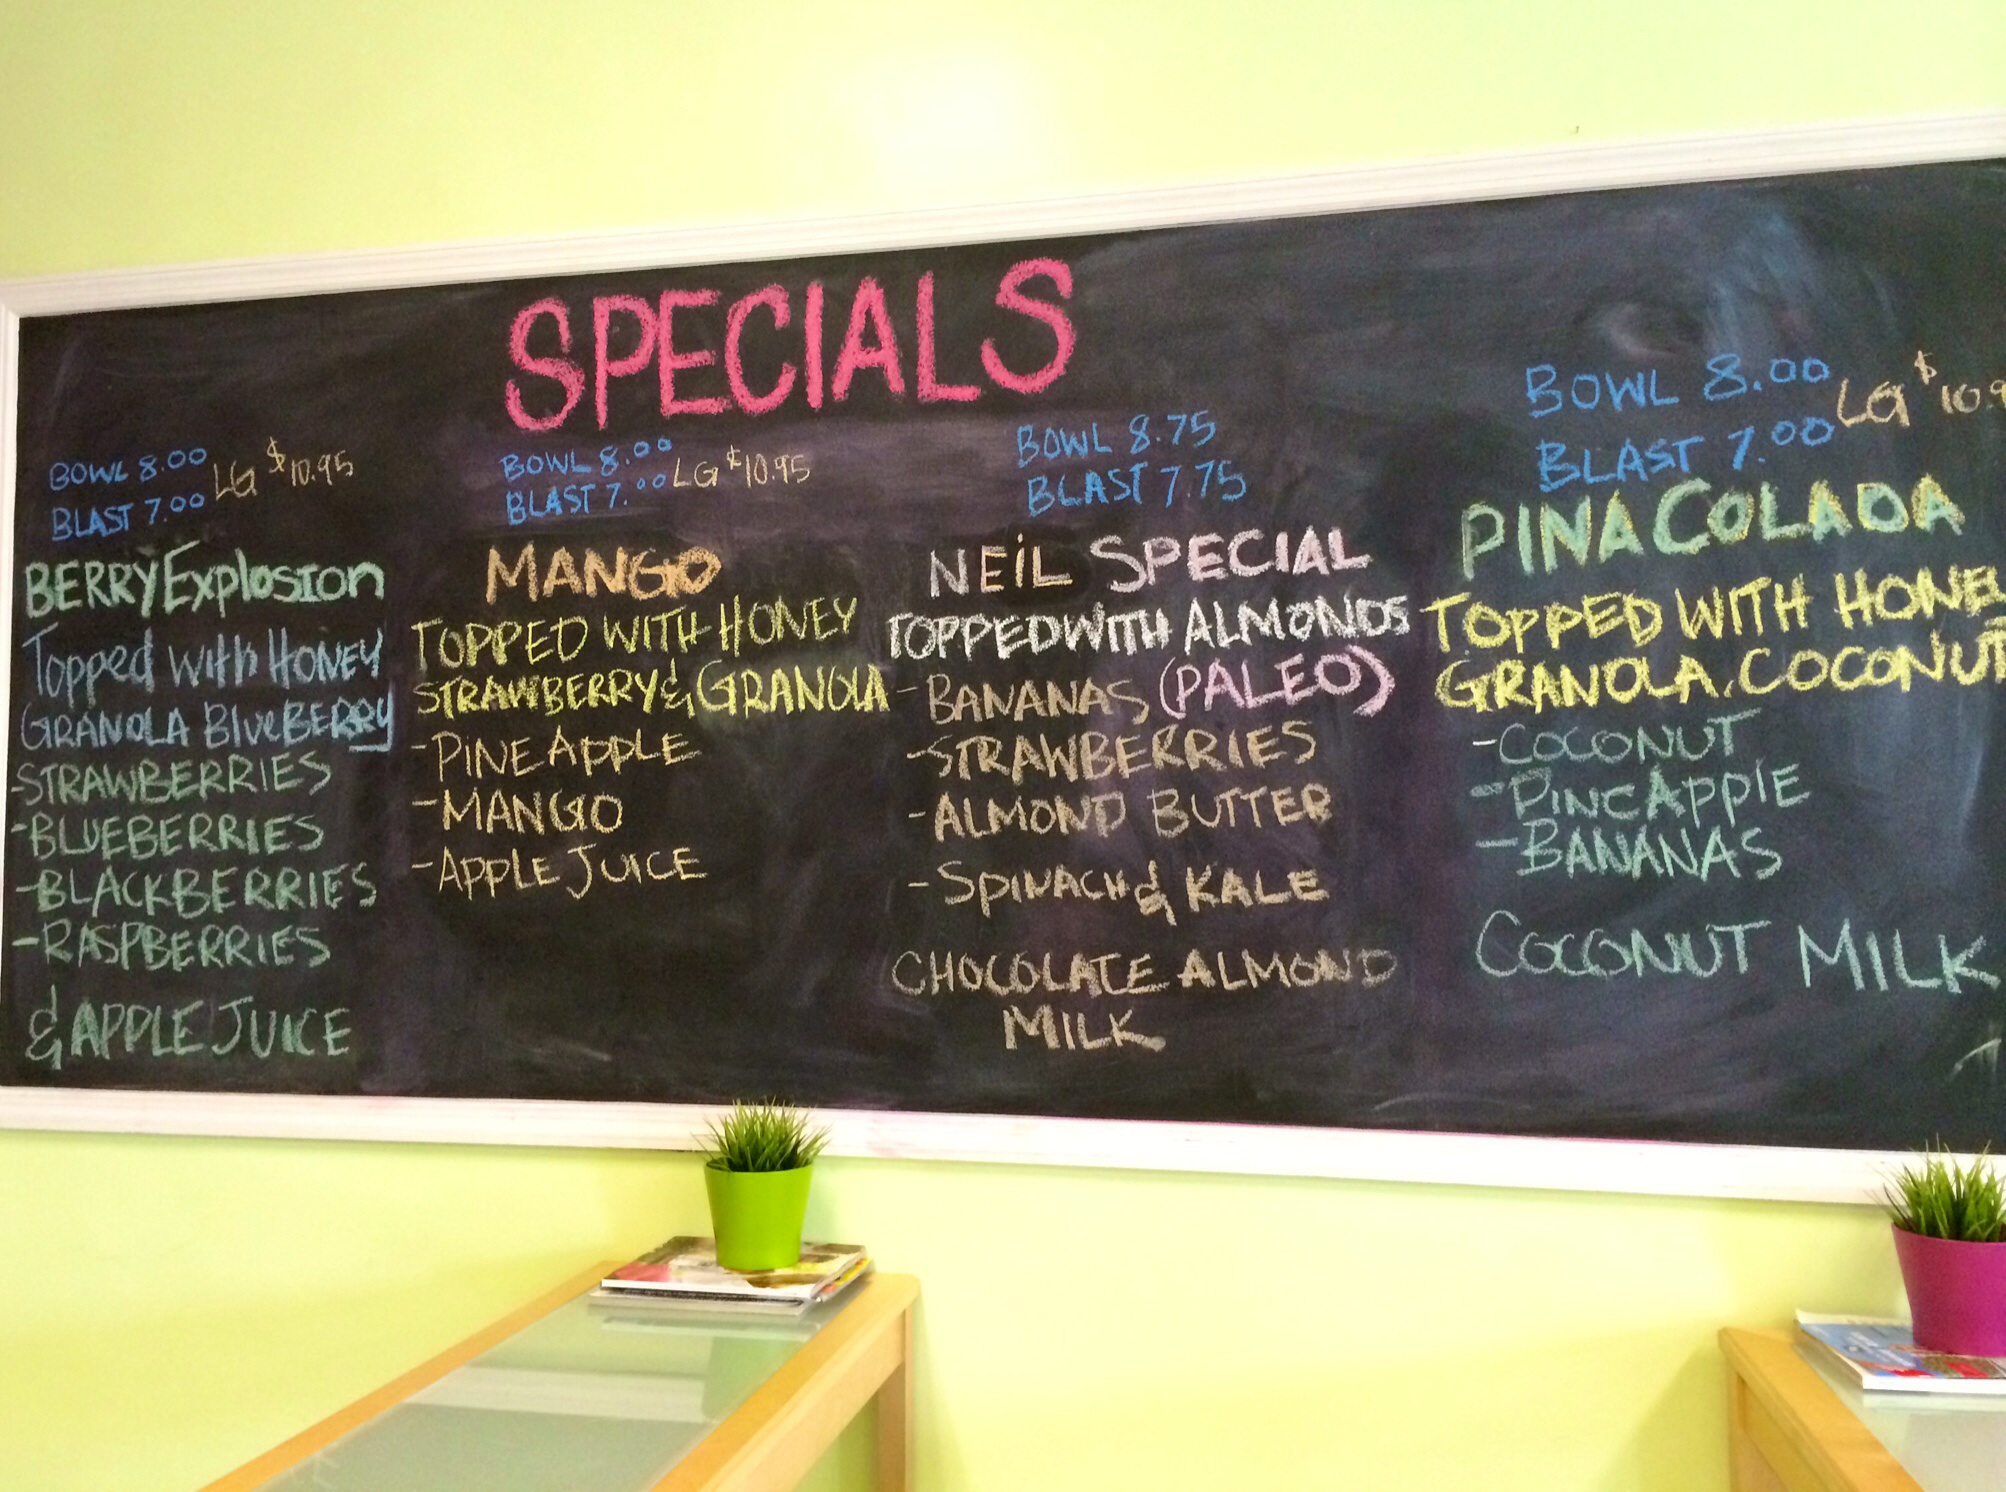 SPECIALS
BOWL 8.00
BLAST 7.00
LG $10.95
BERRY Explosion
Topped with HONEY
GRANOLA BlueBERRY
-STRAWBERRIES
-BLUEBERRIES
-BLACKBERRIES
-RASPBERRIES
& APPLE JUICE
BOWL 8.00
BLAST 7.00
LG $10.95
MANGO
TOPPED WITH HONEY
STRAWBERRY & GRANOLA
-PINEAPPLE
-MANGO
-APPLE JUICE
BOWL 8.75
BLAST 7.75
NEiL SPECIAL
TOPPED WITH ALMONDS
-BANANAS (PALEO)
-STRAWBERRIES
-ALMOND BUTTER
-SPINACH & KALE
CHOCOLATE ALMOND
MILK
BOWL 8.00
BLAST 7.00
LG $10.9
PINA COLADA
TOPPED WITH HONE
GRANOLA, COCONUT
-COCONUT
-PINEAPPlE
-BANANAS
COCONUT MILK